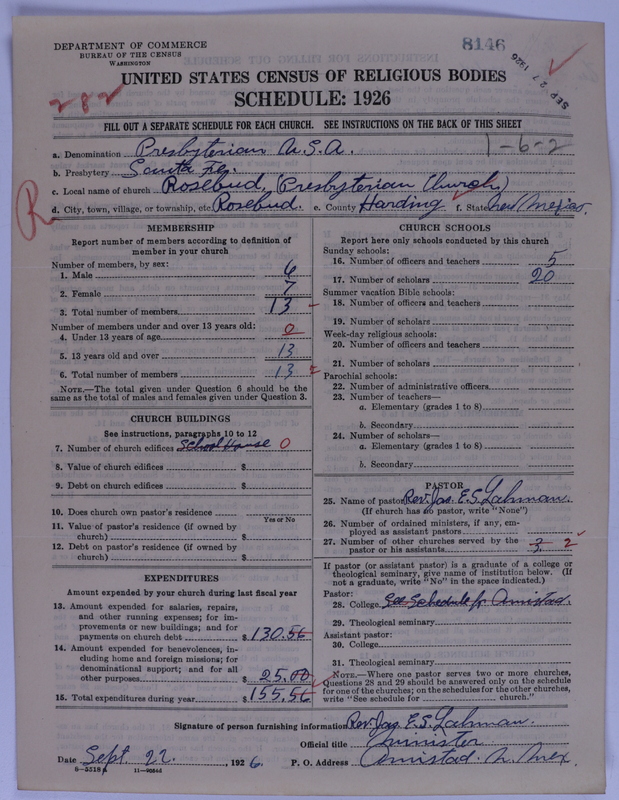 DEPARTMENT OF COMMERCE
BUREAU OF THE CENSUS
WASHINGTON
8146
SEP 27 1926
UNITED STATES CENSUS OF RELIGIOUS BODIES
282
SCHEDULE: 1926
FILL OUT A SEPARATE SCHEDULE FOR EACH CHURCH. SEE INSTRUCTIONS ON THE BACK OF THIS SHEET
1-6-2
a. Denomination Presbyterian U.S.A.
b. Presbytery Santa Fe.
c. Local name of church Rosebud, (Presbyterian Church)
R
d. City, town, village, or township, etc. Rosebud. e. County Harding f. State New Mexico.
MEMBERSHIP
Report number of members according to definition of
member in your church
Number of members, by sex:
1. Male 6
2. Female 7
3. Total number of members 13
Number of members under and over 13 years old:
4. Under 13 years of age 0
5. 13 years old and over 13
6. Total number of members 13
NOTE.—The total given under Question 6 should be
the same as the total of males and females given under Question 3.
CHURCH BUILDINGS
See instructions, paragraphs 10 to 12
7. Number of church edifices School House 0
8. Value of church edifices $
9. Debt on church edifices $
10. Does church own pastor's residence
Yes or No
11. Value of pastor's residence (if owned by
church) $
12. Debt on pastor's residence (if owned by
church) $
EXPENDITURES
Amount expended by your church during last fiscal year
13. Amount expended for salaries, repairs,
and other running expenses; for im-
provements or new buildings; and for
payments on church debt $ 130.56
14. Amount expended for benevolences, in-
cluding home and foreign missions; for
denominational support; and for all
other purposes $ 25.00
15. Total expenditures during year $ 155.56
CHURCH SCHOOLS
Report here only schools conducted by this church
Sunday schools:
16. Number of officers and teachers 5
17. Number of scholars 20
Summer vacation Bible schools:
18. Number of officers and teachers
19. Number of scholars
Week-day religious schools:
20. Number of officers and teachers
21. Number of scholars
Parochial schools:
22. Number of administrative officers
23. Number of teachers—
a. Elementary (grades 1 to 8)
b. Secondary
24. Number of scholars—
a. Elementary (grades 1 to 8)
b. Secondary
PASTOR
25. Name of pastor Rev. Jas. E.S. Lahman.
(If church has no pastor, write "None")
26. Number of ordained ministers, if any, em-
ployed as assistant pastors
27. Number of other churches served by the
pastor or his assistants 3 2
If pastor (or assistant pastor) is a graduate of a college or
theological seminary, give name of institution below. (If
not a graduate, write "No" in the space indicated.)
Pastor:
28. College See Schedule for Amistad.
29. Theological seminary
Assistant pastor:
30. College
31. Theological seminary
NOTE.—Where one pastor serves two or more churches,
Questions 28 and 29 should be answered only on the schedule
for one of the churches; on the schedules for the other churches,
write "See schedule for church."
Signature of person furnishing information Rev. Jas. E.S. Lahman.
Official title Minister
Date Sept. 22, 1926. P. O. Address Amistad. N. Mex.
8-5518 a 11-9056d